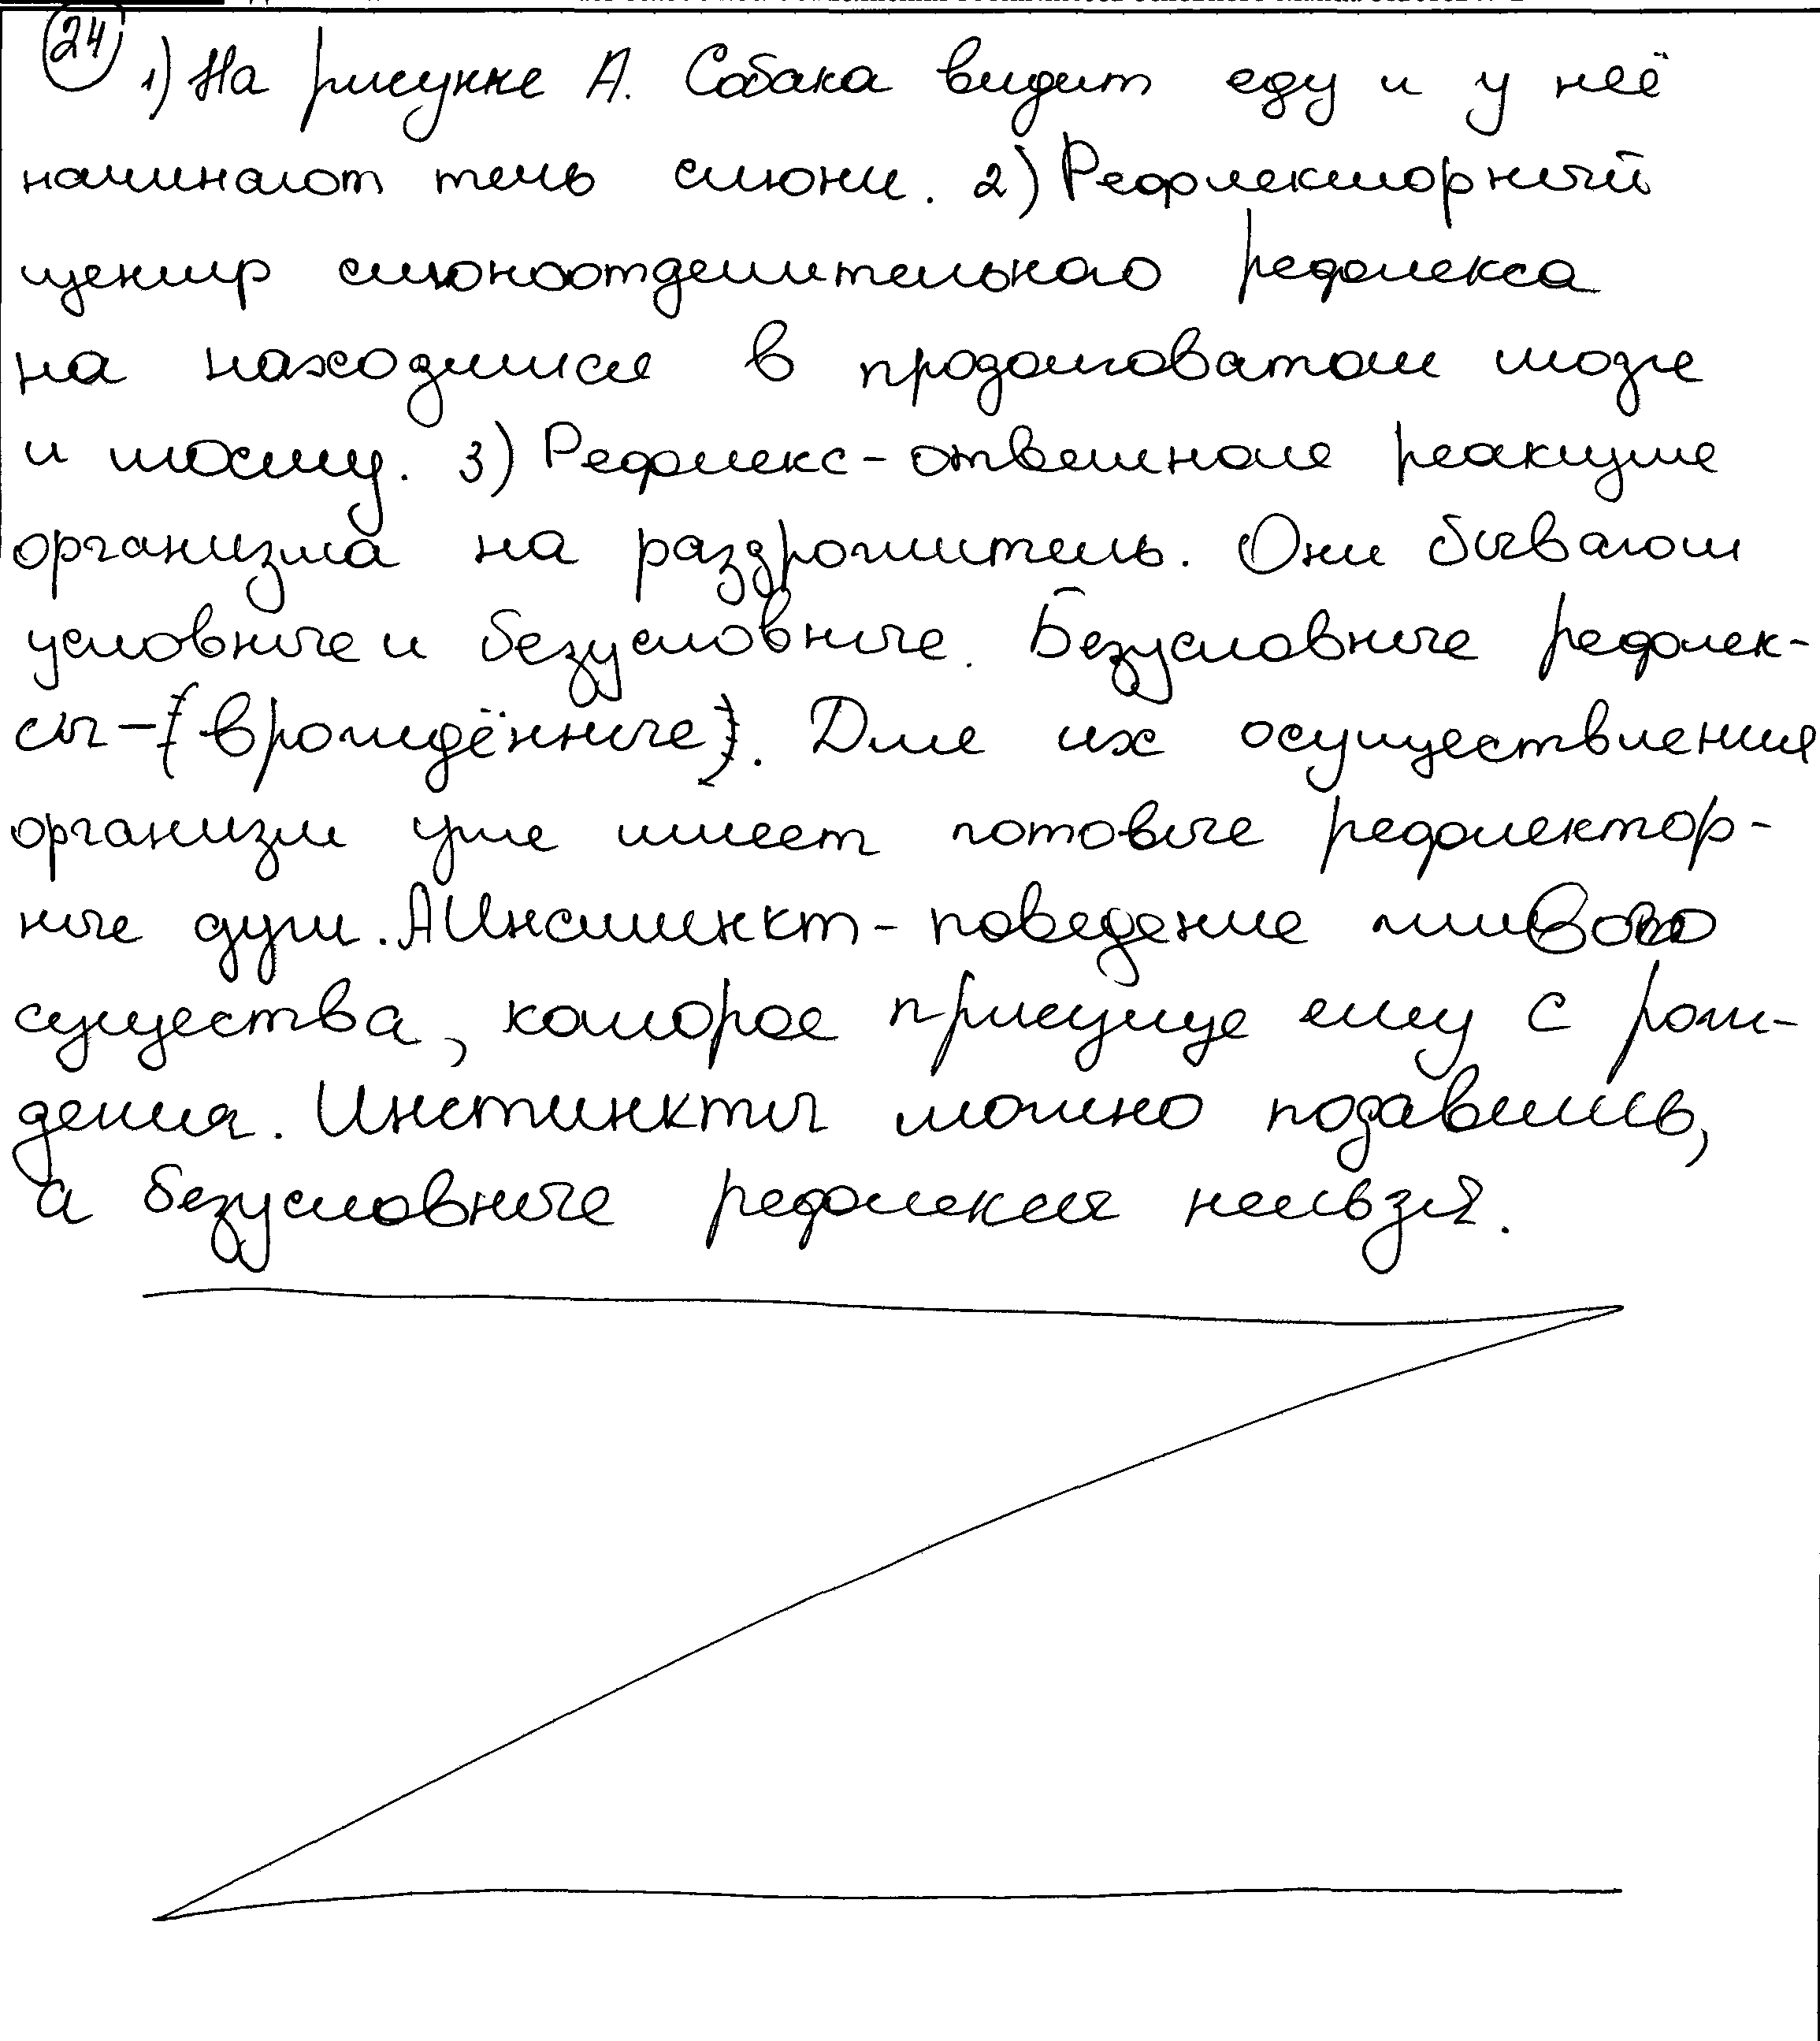 24
1) На рисунке А. Собака видит еду и у неё
начинают течь слюни. 2) Рефлекторный
центр слюноотделительного рефлекса
на находится в продолговатом мозге
и мосту. 3) Рефлекс - ответная реакция
организма на раздрожитель. Они бывают
условные и безусловные. Безусловные рефлек-
сы - (врождённые). Для их осуществления
организм уже имеет готовые рефлектор-
ные дуги. А Инстинкт - поведение живого
существа, которое присуще ему с рож-
дения. Инстинкты можно подавить,
а безусловные рефлексы нельзя.